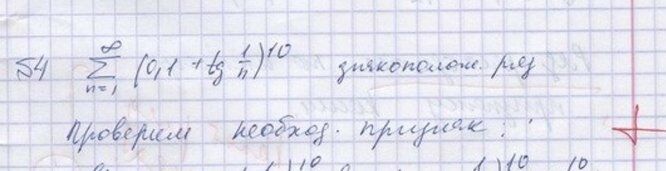 54 $\sum_{n=1}^{\infty} (0,1 + tg \frac{1}{n})^{10}$ знакополож. ряд
Проверим необход. признак: